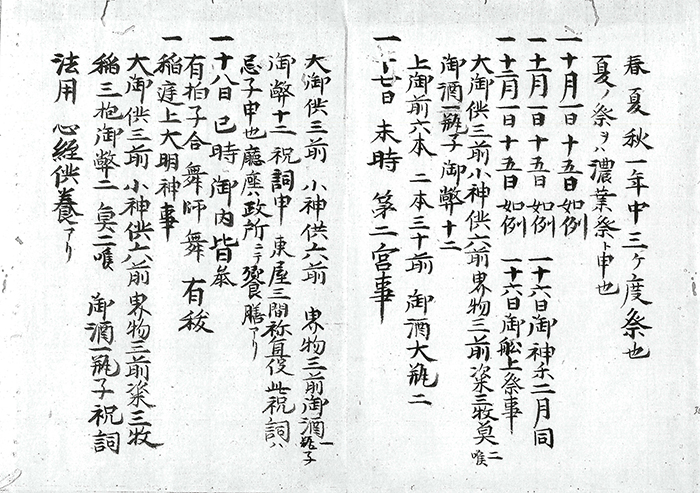 春夏秋一年中三ヶ度祭也
夏ノ祭ヲハ濃業祭ト申也
一十月一日十五日如例
一十一月一日十五日如例 一十六日御神禾二月同
一十二月一日十五日如例 一十六日御舩上祭事
大御供三前小神供六前畀物三前楽三牧莫二喉
御酒一瓶子御弊十二
上御前六本二本三十前御酒大瓶二
一十七日未時第二宮事
大御供三前小神供六前畀物三前御酒一瓶子
御弊十二祝詞申東屋三間祢冝役此祝詞ハ
忌子申也廳塵ハ政所ニテ饗膳アリ
一十八日巳時御内皆参
有拍子合舞師舞有祓
一稲逹上大明神事
大御供三前小神供六前畀物三前楽三牧
稲三把御弊二莫二喉御酒一瓶子祝詞
法用心経供養アリ